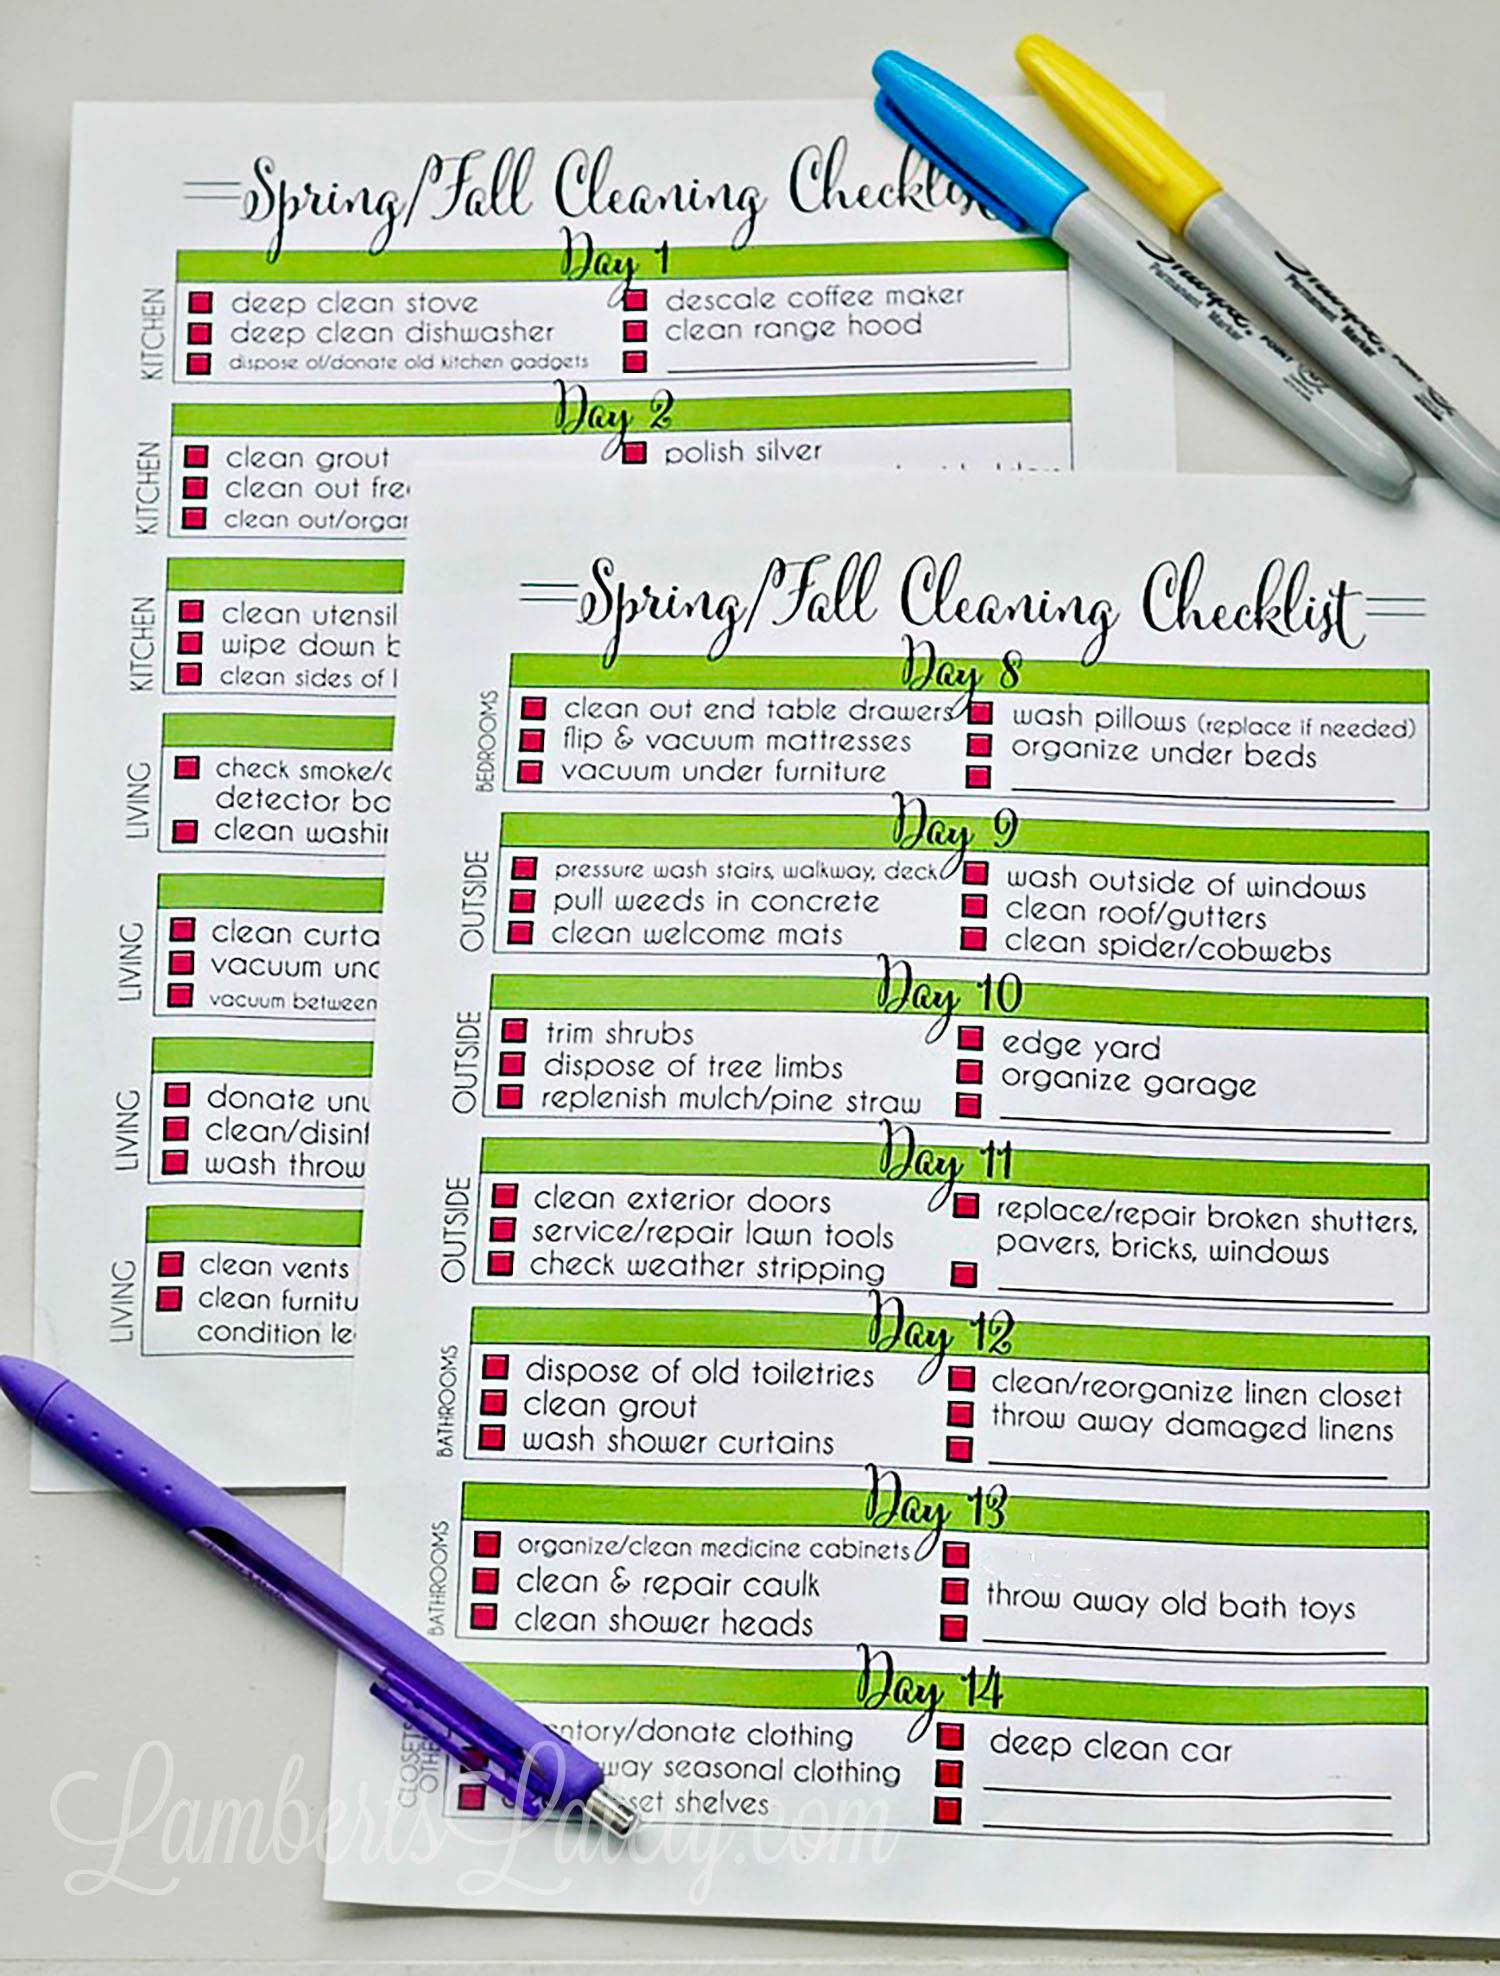 Spring/Fall Cleaning Checklist
Day 1
KITCHEN
deep clean stove
deep clean dishwasher
dispose of/donate old kitchen gadgets
descale coffee maker
clean range hood
Day 2
KITCHEN
clean grout
clean out
clean out/
polish silver
KITCHEN
clean
wipe down
clean sides of
LIVING
check smoke/
detector
clean
LIVING
clean
vacuum
vacuum between
LIVING
donate
clean/
wash throw
LIVING
clean vents
clean
condition
Sharpie
Permanent Marker
Sharpie
Permanent Marker
Spring/Fall Cleaning Checklist
Day 8
BEDROOMS
clean out end table drawers
flip & vacuum mattresses
vacuum under furniture
wash pillows (replace if needed)
organize under beds
Day 9
OUTSIDE
pressure wash stairs, walkway, deck
pull weeds in concrete
clean welcome mats
wash outside of windows
clean roof/gutters
clean spider/cobwebs
Day 10
OUTSIDE
trim shrubs
dispose of tree limbs
replenish mulch/pine straw
edge yard
organize garage
Day 11
OUTSIDE
clean exterior doors
service/repair lawn tools
check weather stripping
replace/repair broken shutters,
pavers, bricks, windows
Day 12
BATHROOMS
dispose of old toiletries
clean grout
wash shower curtains
clean/reorganize linen closet
throw away damaged linens
Day 13
BATHROOMS
organize/clean medicine cabinets
clean & repair caulk
clean shower heads
throw away old bath toys
Day 14
CLOSETS
OTHER
/donate clothing
seasonal clothing
shelves
deep clean car
LambertsLately.com